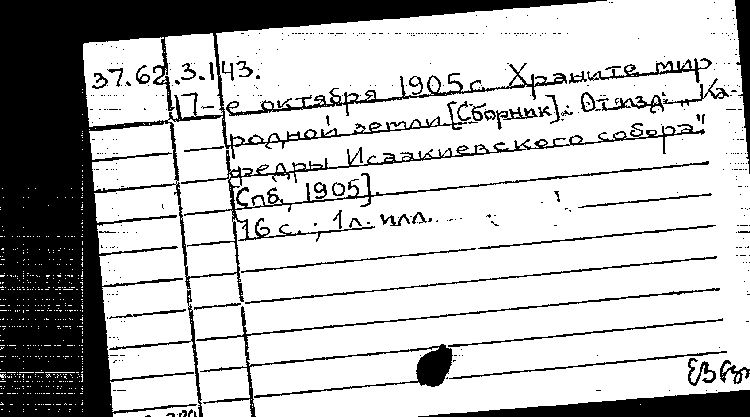 37.62.3.143.
17-е октября 1905 г. Храните мир
родной земли. [Сборник]. Отизд: „Ка-
федры Исаакиевского собора".
[Спб., 1905].
16 с.; 1 л. илл.